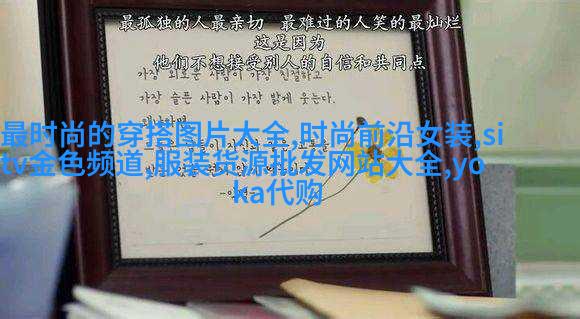 最孤独的人最亲切 最难过的人笑的最灿烂
这是因为
他们不想接受别人的自信和共同点
가장 외로운 사람이 가장 친절하고
가장 슬픈 사람이 가장 밝게 웃는다.
왜냐하면
最时尚的穿搭图片大全,时尚前沿女装,si
tv金色频道,服装货源批发网站大全,yo
ka代购